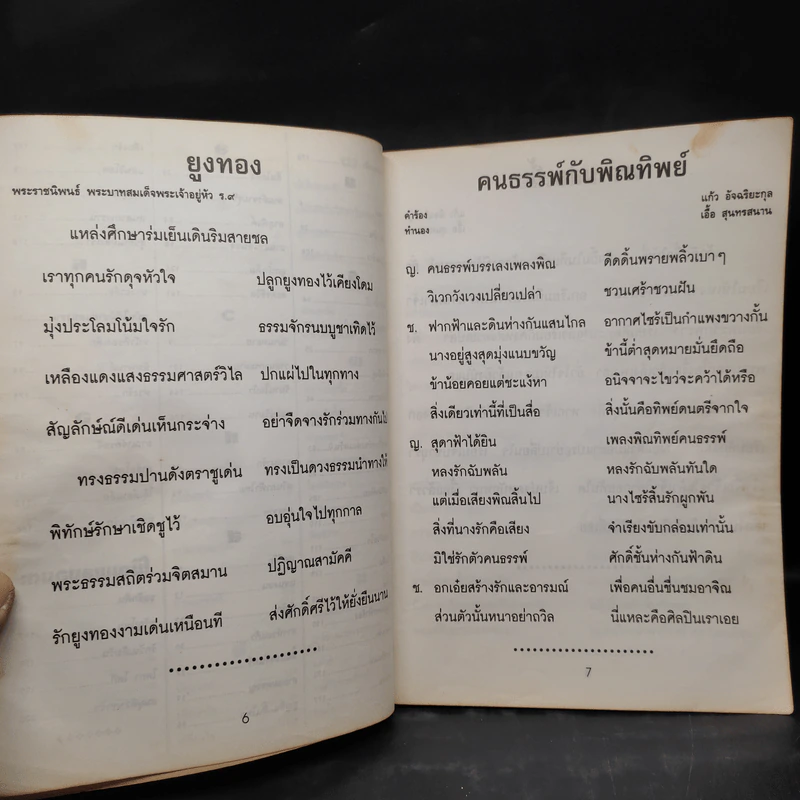 ยูงทอง
พระราชนิพนธ์ พระบาทสมเด็จพระเจ้าอยู่หัว ร.๙
แหล่งศึกษาร่มเย็นเดินริมสายชล
เราทุกคนรักดุจหัวใจ ปลูกยูงทองไว้เคียงโดม
มุ่งประโลมโน้มใจรัก ธรรมจักรนบบูชาเทิดไว้
เหลืองแดงแสงธรรมศาสตร์วิไล ปกแผ่ไปในทุกทาง
สัญลักษณ์ดีเด่นเห็นกระจ่าง อย่าจืดจางรักร่วมทางกันไป
ทรงธรรมปานดังตราชูเด่น ทรงเป็นดวงธรรมนำทางให้
พิทักษ์รักษาเชิดชูไว้ อบอุ่นใจไปทุกกาล
พระธรรมสถิตร่วมจิตสมาน ปฏิญาณสามัคคี
รักยูงทองงามเด่นเหนือนที ส่งศักดิ์ศรีไว้ให้ยั่งยืนนาน
6
คนธรรพ์กับพิณทิพย์
คำร้อง แก้ว อัจฉริยะกุล
ทำนอง เอื้อ สุนทรสนาน
ญ. คนธรรพ์บรรเลงเพลงพิณ ดีดดิ้นพรายพลิ้วเบา ๆ
วิเวกวังเวงเปลี่ยวเปล่า ชวนเศร้าชวนฝัน
ช. ฟากฟ้าและดินห่างกันแสนไกล อากาศไซร้เป็นกำแพงขวางกั้น
นางอยู่สูงสุดมุ่งแนบขวัญ ข้านี้ต่ำสุดหมายมั่นยึดถือ
ข้าน้อยคอยแต่ชะแง้หา อนิจจาจะไขว่จะคว้าได้หรือ
สิ่งเดียวเท่านี้ที่เป็นสื่อ สิ่งนั้นคือทิพย์ดนตรีจากใจ
ญ. สุดาฟ้าได้ยิน เพลงพิณทิพย์คนธรรพ์
หลงรักฉับพลัน หลงรักฉับพลันทันใด
แต่เมื่อเสียงพิณสิ้นไป นางไซร้สิ้นรักผูกพัน
สิ่งที่นางรักคือเสียง จำเรียงขับกล่อมเท่านั้น
มิใช่รักตัวคนธรรพ์ ศักดิ์ชั้นห่างกันฟ้าดิน
ช. อกเอ๋ยสร้างรักและอารมณ์ เพื่อคนอื่นชื่นชมอาจิณ
ส่วนตัวนั้นหนาอย่าถวิล นี่แหละคือศิลปินเราเอย
7